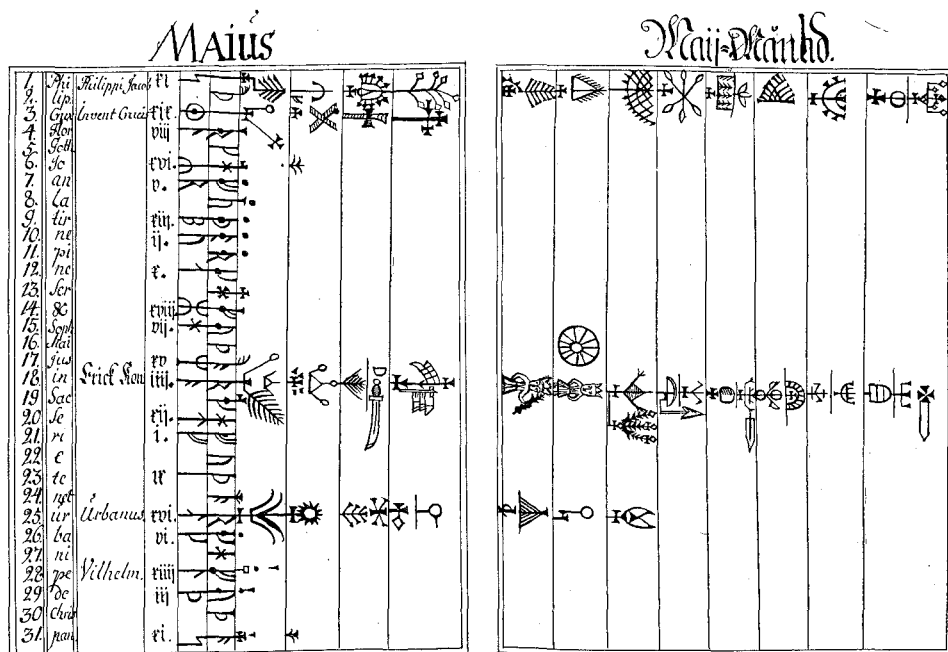 MAIŮS
Maij=Månhd.
1. Phi Philippi Jacob xi
2. lip.
3. Gra Invent Crucis xix.
4. Flor viij
5. Goth
6. Jo xvi.
7. an v.
8. La
9. tir xiij.
10. ne ij.
11. pi
12. ne x.
13. Ser
14. & xviij
15. Soph vij.
16. Mai
17. jus xv
18. in Erick Kon. iiij.
19. Sac
20. Se xij.
21. ri 1.
22. e
23. te ix
24. net
25. ur Urbanus. xvi.
26. ba vi.
27. ni
28. pe Vilhelm. xiiij
29. De iij
30. Chris
31. pan. xi.